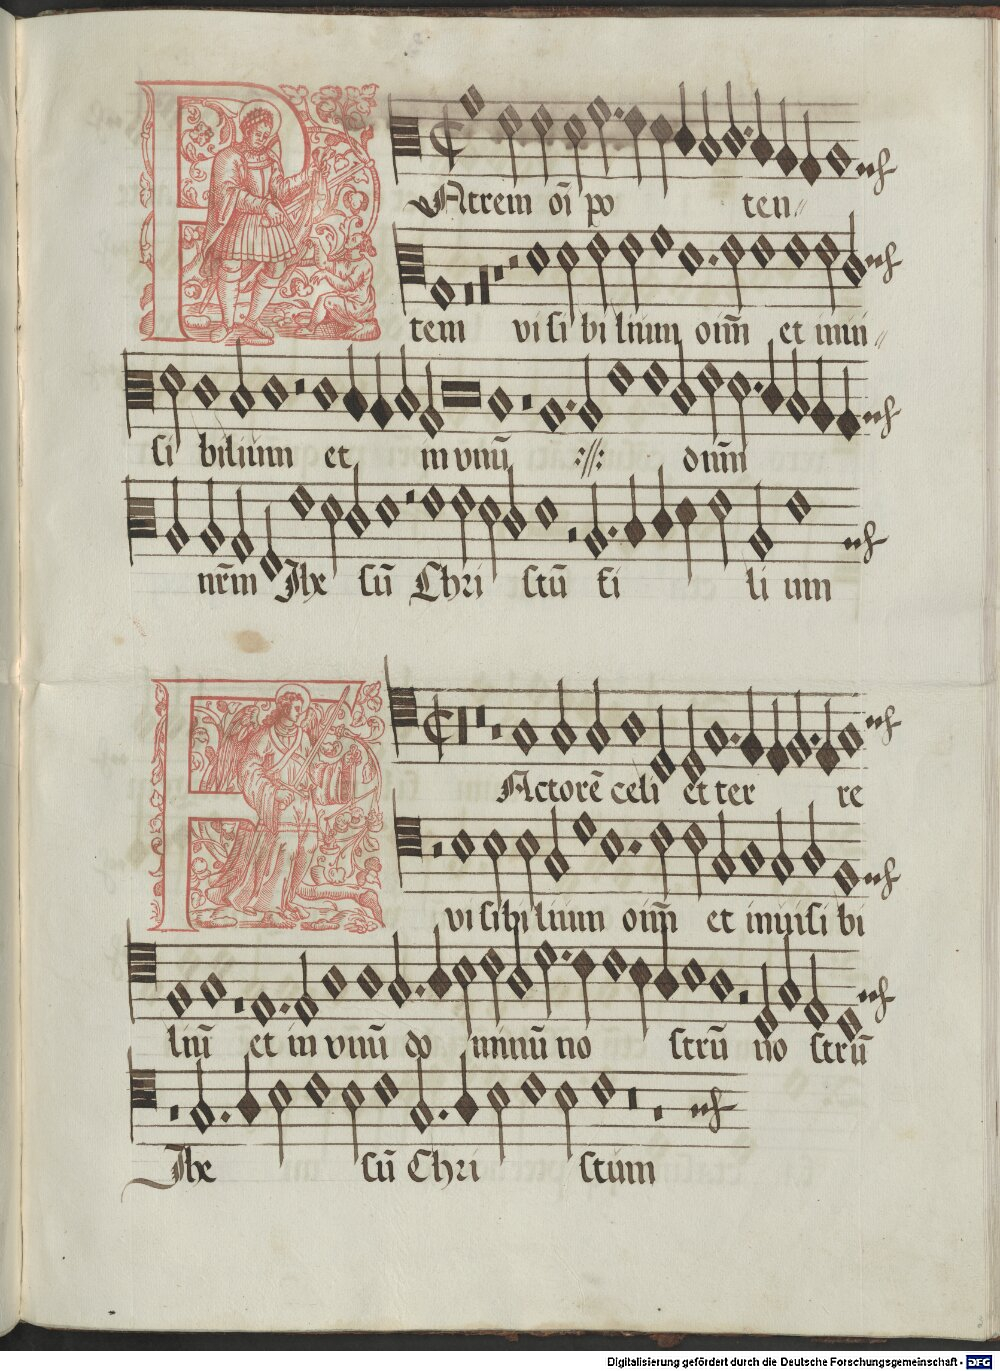 PAtrem oı̄ po ten
tem visibilium oım̄ et invi
si bilium et in vnū :||: dnm̄
nr̄m Jhe sū Chri stū fi li um
FActorē celi et ter re
visibilium oım̄ et invisi bi
liū et in vnū do minū no strū no strū
Jhe sū Chri stum
Digitalisierung gefördert durch die Deutsche Forschungsgemeinschaft - DFG